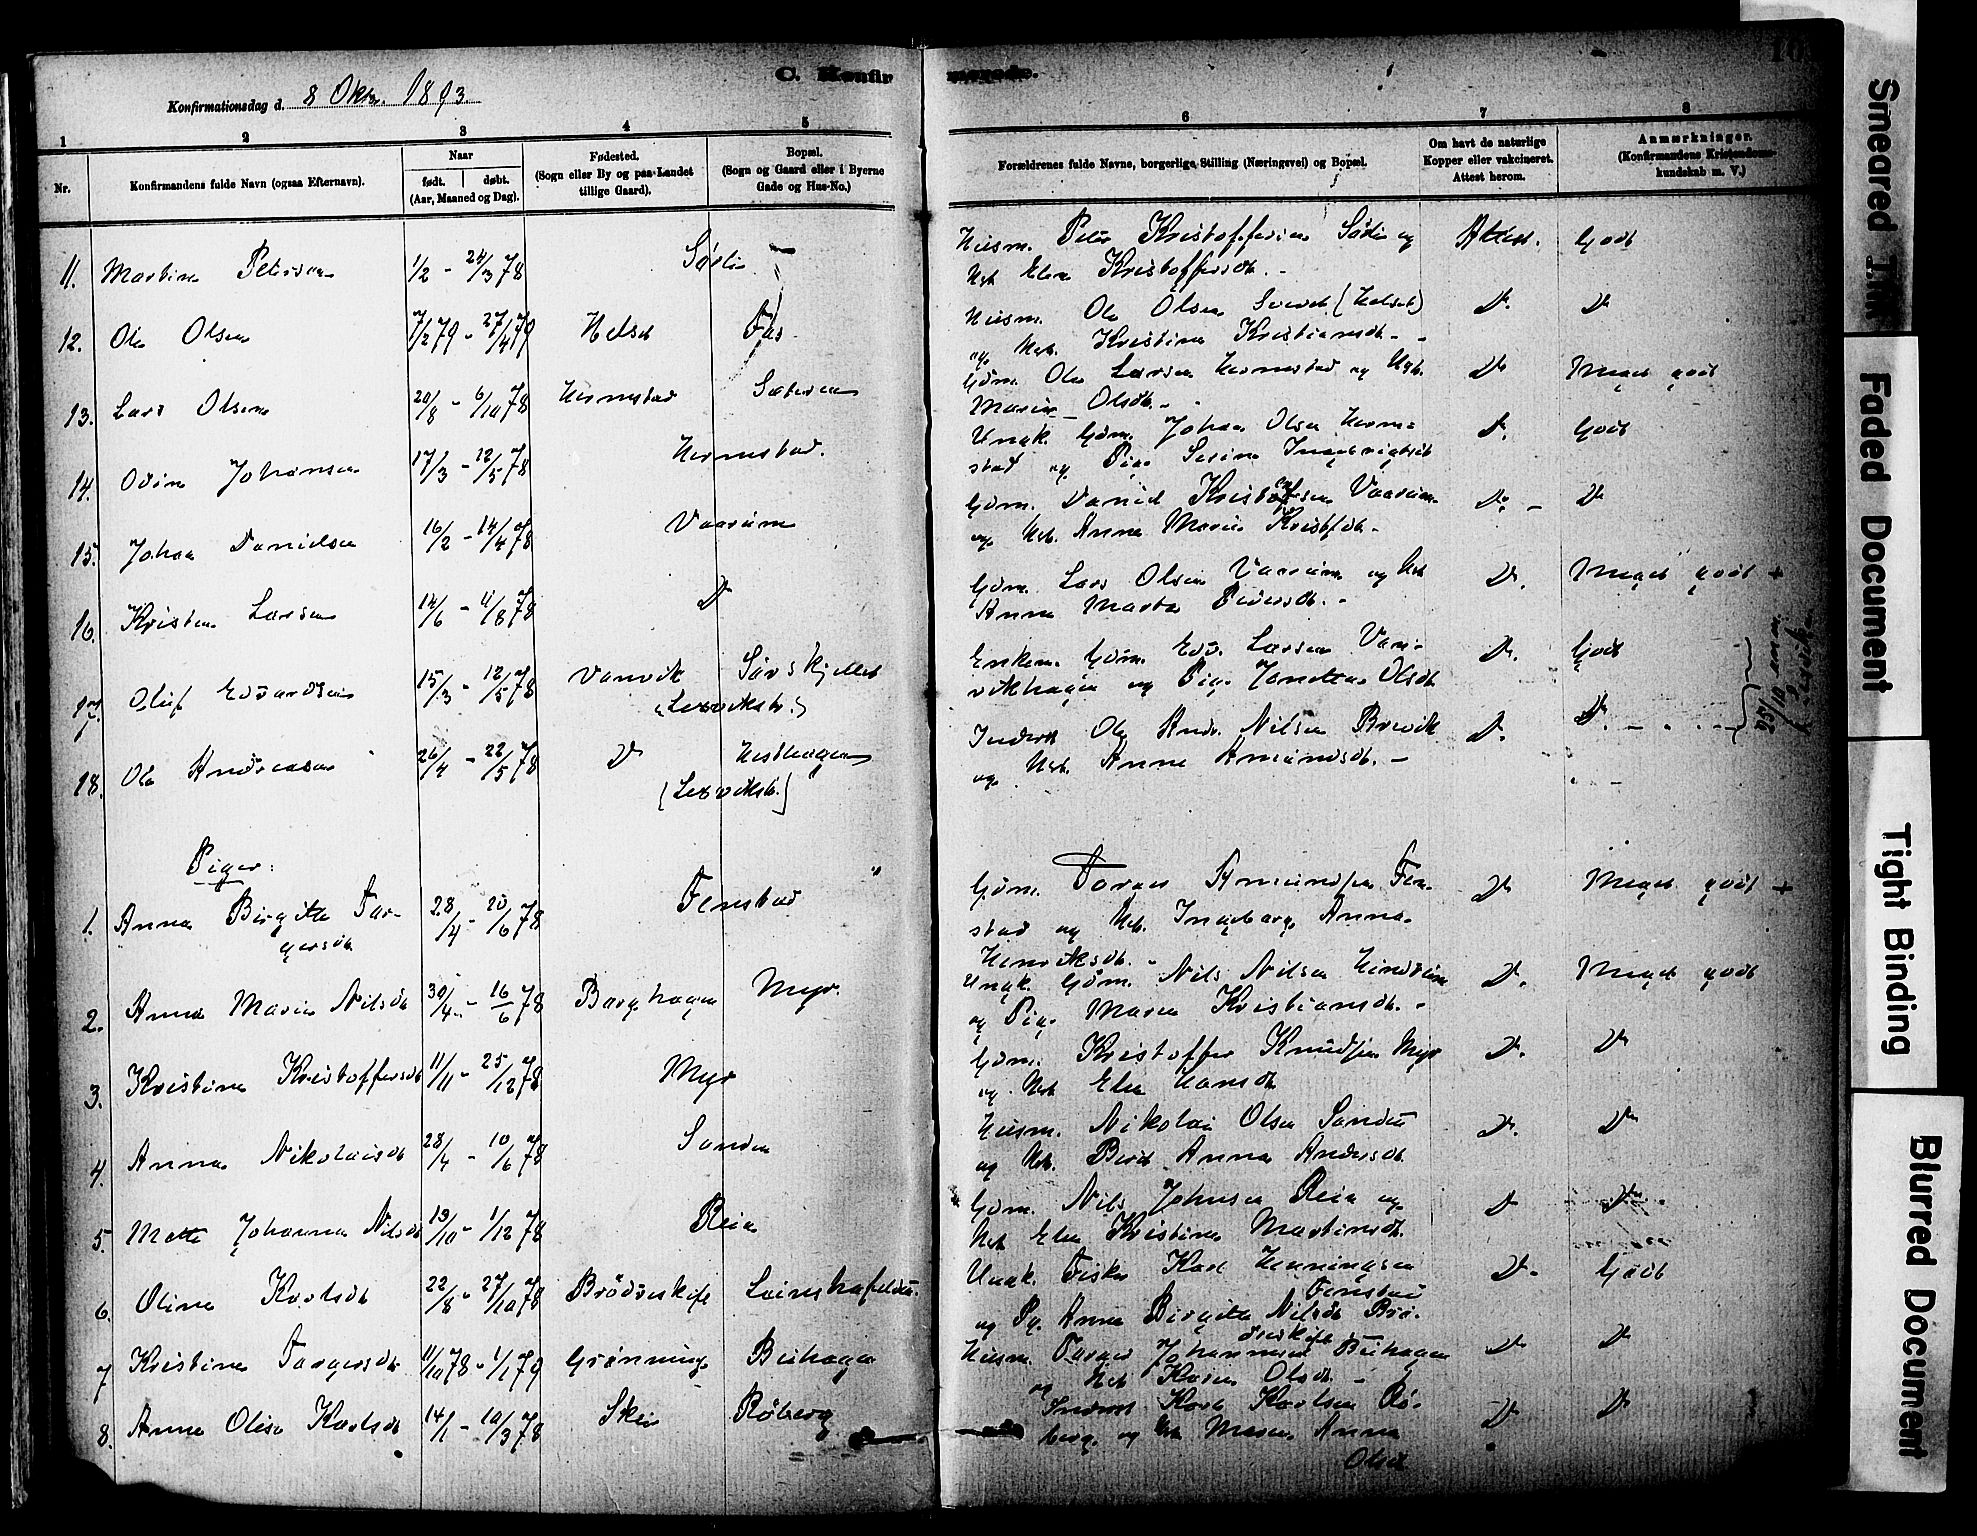 C. Konfirmerede.
Konfirmationsdag d. 8 Oktr. 1893.
1 2 3 4 5 6 7 8
Nr.
Konfirmandens fulde Navn (ogsaa Efternavn).
Naar
født. døbt.
(Aar, Maaned og Dag).
Fødested.
(Sogn eller By og paa Landet
tillige Gaard).
Bopæl.
(Sogn og Gaard eller i Byerne
Gade og Hus-No.)
Forældrenes fulde Navne, borgerlige Stilling (Næringsvei) og Bopæl.
Om havt de naturlige
Kopper eller vakcineret.
Attest herom.
Anmærkninger.
(Konfirmandens Kristendoms-
kundskab m. V.)
11. Martin Petersen 1/2 - 24/3 78 Sørli
Husm. Peter Kristoffersen Sørli og Attest. Godt
Hst Elen Kristoffersdt. -
12. Ole Olsen 7/2 79 - 27/4 79 Helset Fas
Husm. Ole Olsen (Helset) Do Do
og Hst. Kristine Kristiansdt. -
13. Lars Olsen 20/8 - 6/10 78 Hermstad Sæteren
Gdm. Ole Larsen Hermstad og Hst. Do Meget godt
Marie Olsdt. -
14. Odin Johansen 17/3 - 12/5 78 Hermstad.
Ungk. Gdm. Johan Olsen Herm- Do. Godt
stad og Pige Serine Ingebrigtsdt
15. Johan Danielsen 16/2 - 14/4 78 Vaarum
Gdm. Daniel Kristofersen Vaarum Do. - Do
og Hst. Anna Marie Kristofdt. -
16. Kristen Larsen 14/6 - 4/8 78 Do
Gdm. Lars Olsen Vaarum og Hst Do. Meget godt +
Anne Marta Pedersdt. -
17. Oluf Edvardsen 15/3 - 12/5 78 Vanvik Sørskjellet
(Lexviksb.)
Enkem. Gdm. Edv. Larsen Van- Do. Godt
vikhagen og Pige Jonetta Olsdt
18. Ole Andreasen 26/4 - 22/5 78 Do Hesthagen
(Lexviksb.)
Inderst Ole Andr. Nilsen Brevik Do. Do. -
og Hst. Anne Amundsdt. -
Piger:
1. Anna Birgitte Tor- 28/4 - 10/6 78 Fenstad
gersdt
Gdm. Torger Amundsen Fen- Do Meget godt +
stad og Hst. Ingeborg Anna
Henriksdt. -
2. Anna Marie Nilsdt 30/4 - 16/6 78 Borghagen Myr.
Ungk. Gdm. Nils Nilsen Hindrum Do. Meget godt
og Pige Maren Kristiansdt. -
3. Kristine Kristoffersdt 11/11 - 25/12 78 Myr
Gdm. Kristoffer Knudsen Myr Do. Do
og Hst Elen Hansdt
4. Anna Nikolaisdt 28/4 - 10/6 78 Sanden
Husm. Nikolai Olsen Sanden Do. Do
og Hst. Berit Anna Andersdt.
5. Mette Johanna Nilsdt 13/10 - 1/12 78 Rein
Gdm. Nils Johnsen Rein og Do Do.
Hst Elen Kristine Martinsdt.
6. Oline Karlsdt 22/8 - 27/10 78 Brødreskift
Ungk. Fisker Karl Henningsen Do. Godt
Fenstad
og Pg. Anne Birgitte Nilsdt Brø-
dreskift
7 Kristine Torgersdt 11/10 78 - 1/1 79 Grønning Buhagen
Husm. Torger Johannesen Buhagen Do Do
og Hst Karen Olsdt. -
8. Anne Olise Karlsdt 14/1 - 10/3 78 Skei Røberg
Inderst Karl Karlsen Rø- Do Do
berg. og Hst Maren Anna
Olsdt
Smeared Ink
Faded Document
Tight Binding
Blurred Document